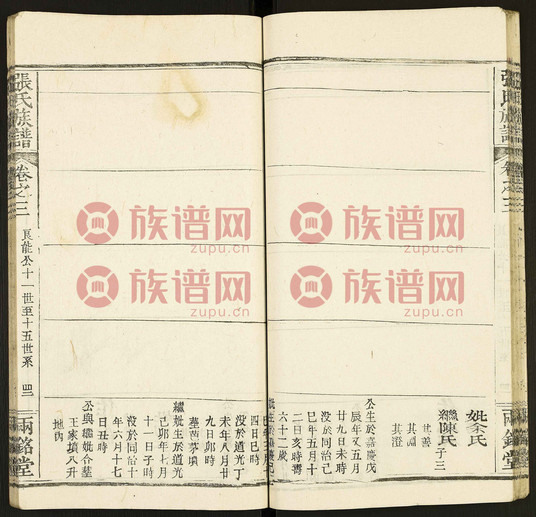 張氏族譜
卷之三
兩銘堂
妣余氏
繼陳氏
子三
其善
其淵
其澄
公生於嘉慶戊
辰年又五月
廿九日未時
没於同治己
巳年五月十
二日亥時壽
六十二歲
四日巳時
没於道光丁
未年八月廿
九日卯時
繼妣生於道光
己卯年七月
十一日子時
没於同治十
年六月十七
日丑時
公與繼妣合墓
王家壪八升
地內
張氏族譜
卷之三
良能公十一世至十五世系
兩銘堂
族谱网
zupu.cn
族谱网
zupu.cn
族谱网
zupu.cn
族谱网
zupu.cn